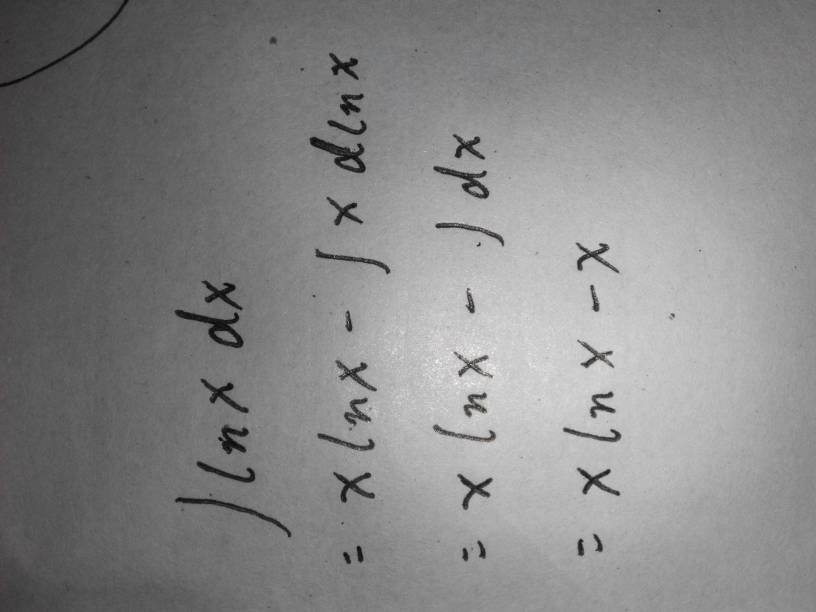 ∫ ln x dx
= x ln x - ∫ x d ln x
= x ln x - ∫ dx
= x ln x - x